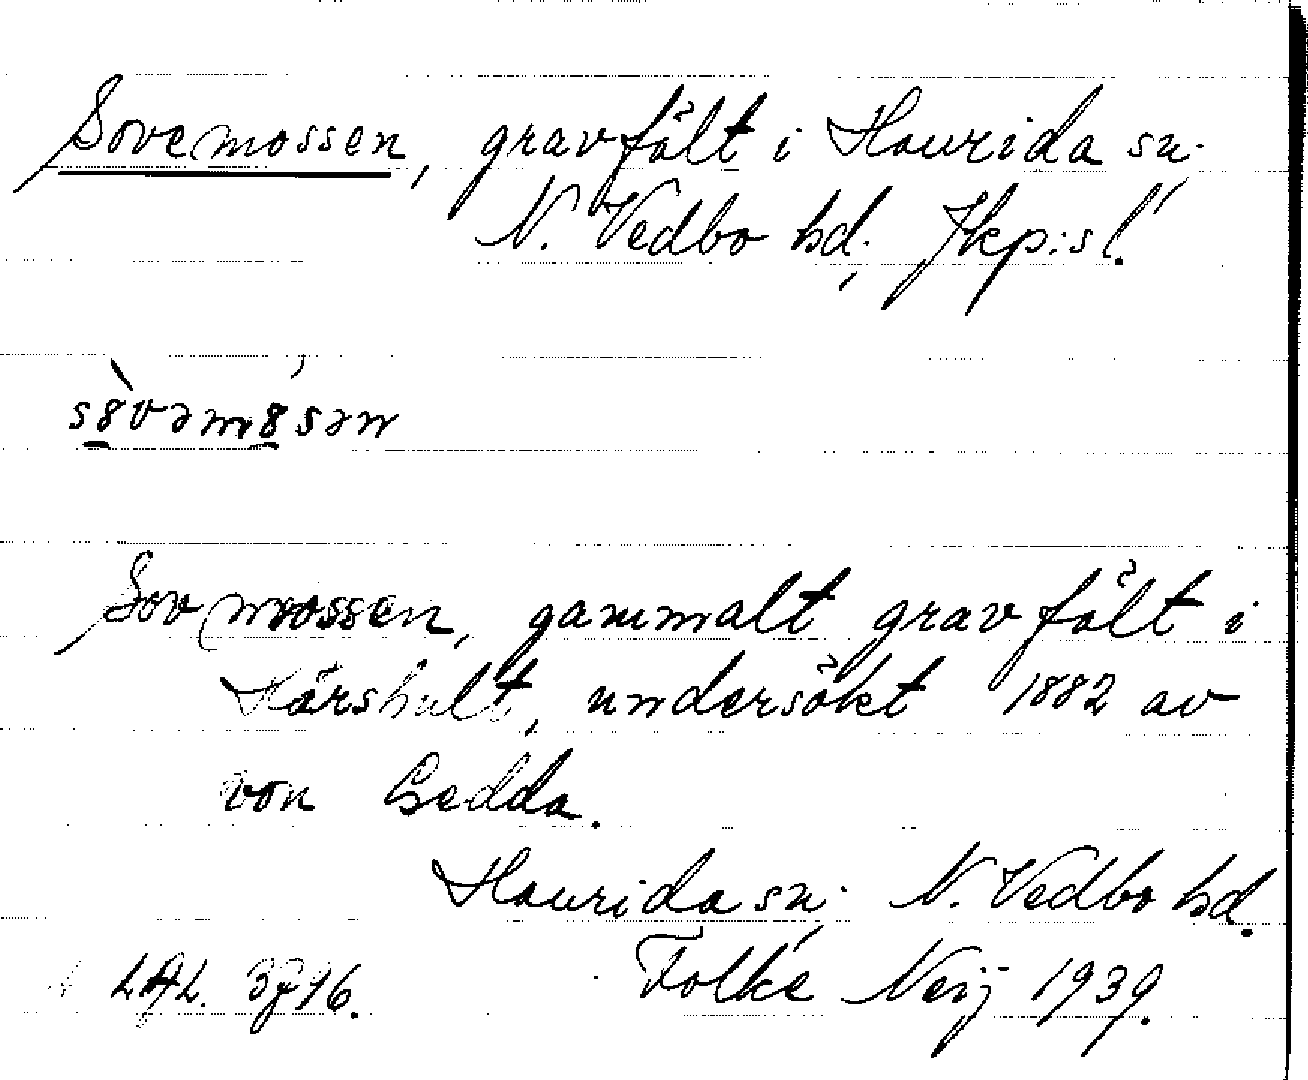 Sovemossen, gravfält i Haurida sn.
N. Vedbo hd, Jkp:s l.
Sovmossen, gammalt gravfält i
Hårshult, undersökt 1882 av
von Gedda.
Haurida sn. N. Vedbo hd.
Folke Neij 1939.